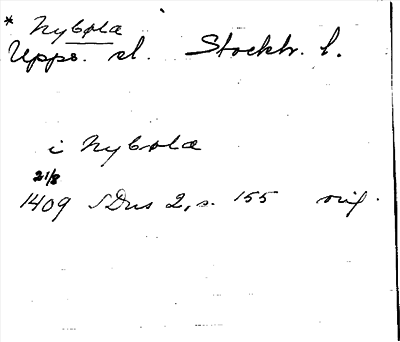 * Nybola
Upps. sl. Stockh. l.
i Nybola
21/8
1409 SDns 2, s. 155 orig.